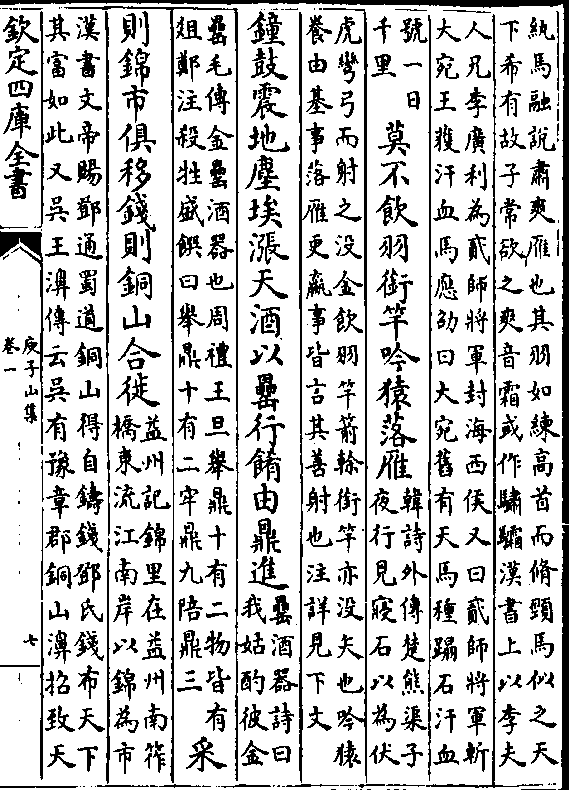 紈馬融説肅爽雁也其羽如練高首而脩頸馬似之天
下希有故子常欲之爽音霜或作驌驦漢書上以李夫
人兄李廣利為貳師將軍封海西侯又曰貳師將軍斬
大宛王獲汗血馬應劭曰大宛舊有天馬種蹋石汗血
號一日
千里
莫不飲羽銜竿吟猿落雁
韓詩外傳楚熊渠子
夜行見寢石以為伏
虎彎弓而射之没金飲羽竿箭榦銜竿亦没矢也吟猿
養由基事落雁更羸事皆言其善射也注詳見下文
鐘鼓震地塵埃漲天酒以罍行餚由鼎進
罍酒器詩曰
我姑酌彼金
罍毛傳金罍酒器也周禮王旦舉鼎十有二物皆有
俎鄭注殺牲盛饌曰舉鼎十有二牢鼎九陪鼎三
采
則錦市俱移錢則銅山合徙
益州記錦里在益州南笮
橋東流江南岸以錦為市
漢書文帝賜鄧通蜀道銅山得自鑄錢鄧氏錢布天下
其富如此又吳王濞傳云吳有豫章郡銅山濞招致天
欽定四庫全書
庾子山集
卷一
七